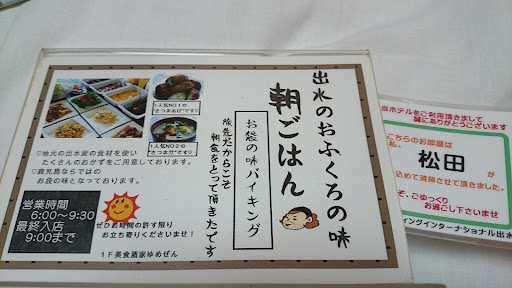 出水のおふくろの味
朝ごはん
お袋の味バイキング
旅先だからこそ
朝食をとって頂きたいです
人気NO1の
"さつまあげ"です♡
人気NO2の
"さつま汁"です♡
♡地元の出水産の食材を使い
たくさんのおかずをご用意しております。
♡鹿児島ならではの
お袋の味となっております。
営業時間
6:00～9:30
最終入店
9:00まで
ぜひお時間の許す限り
お立ち寄りくださいませ！
1F美食酒家ゆめぜん
当ホテルをご利用頂きまして
誠にありがとうございます
こちらのお部屋は
私、
松田
が
込めて清掃させて頂きました。
ぞ、ごゆっくり
お過ごし下さいませ
イングインターナショナル出水